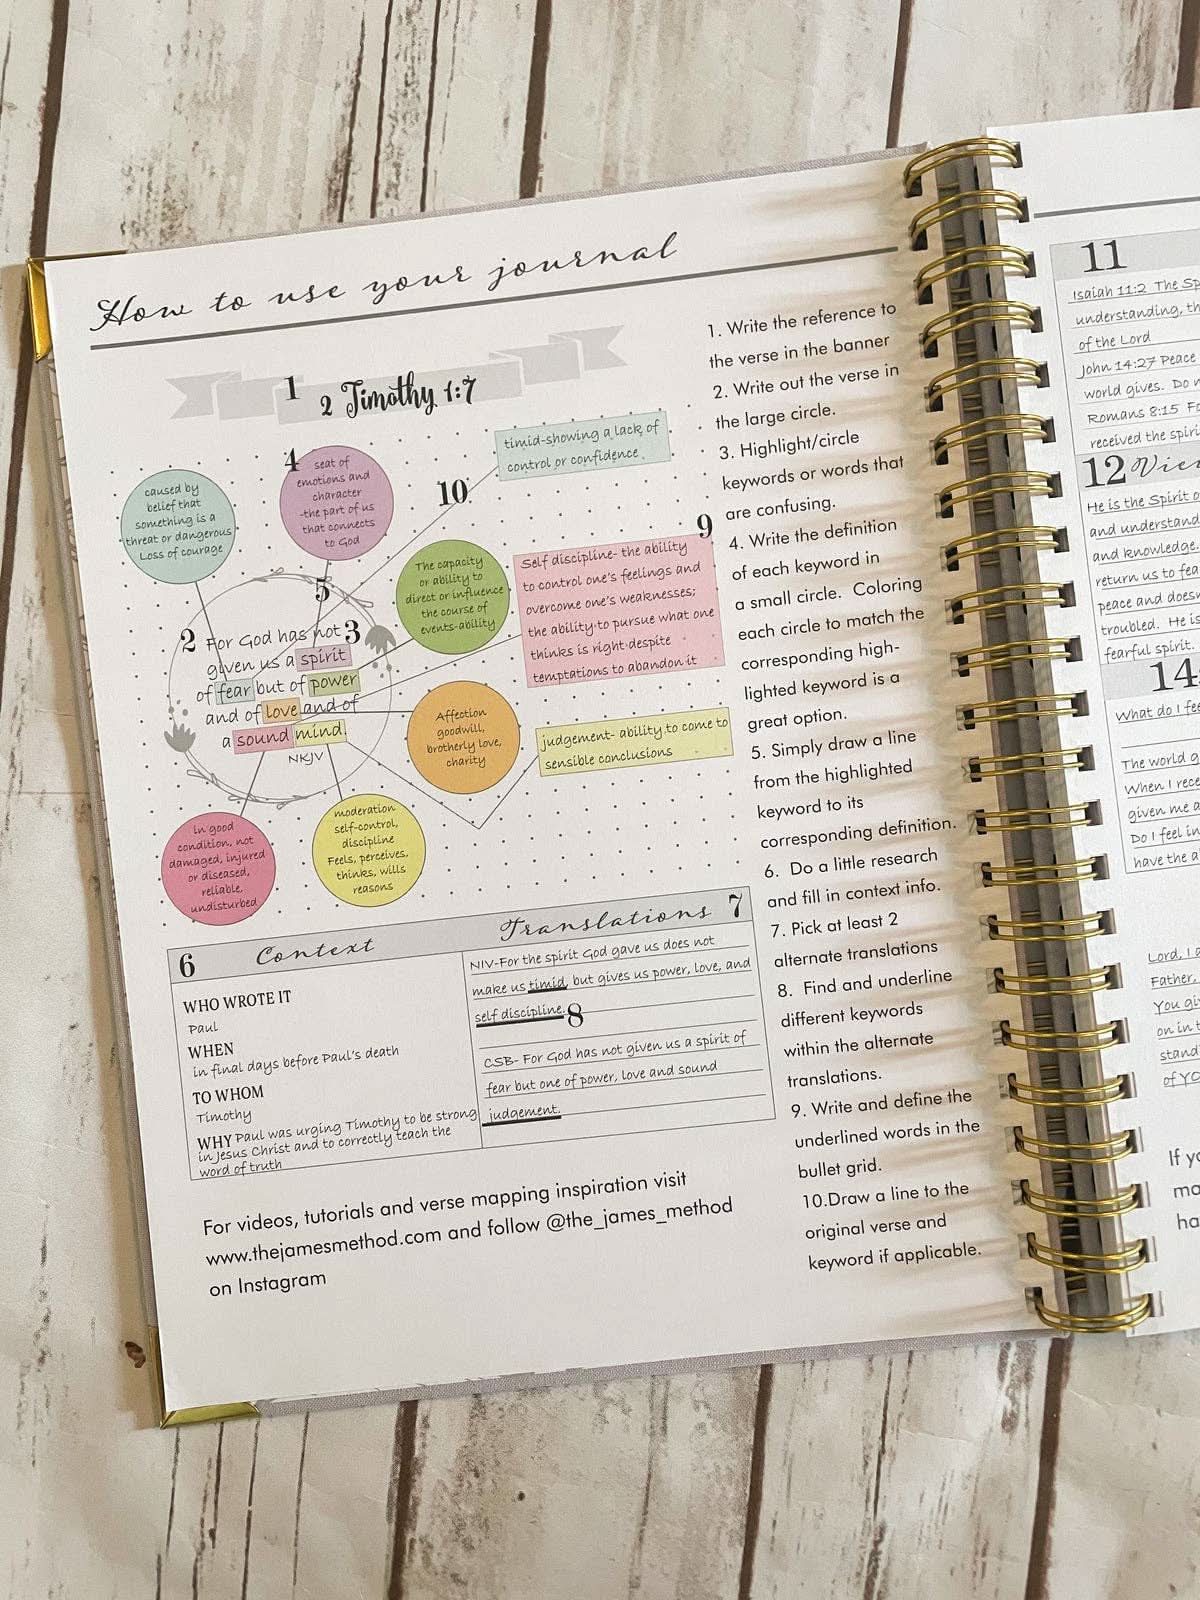 How to use your journal
1
2 Timothy 1:7
timid-showing a lack of
control or confidence
10
4
seat of
emotions and
character
-the part of us
that connects
to God
caused by
belief that
something is a
threat or dangerous
Loss of courage
The capacity
or ability to
direct or influence
the course of
events-ability
9
Self discipline- the ability
to control one's feelings and
overcome one's weaknesses;
the ability to pursue what one
thinks is right despite
temptations to abandon it
5
2 For God has not 3
given us a spirit
of fear but of power
and of love and of
a sound mind.
NKJV
Affection
goodwill,
brotherly love,
charity
judgement- ability to come to
sensible conclusions
in good
condition, not
damaged, injured
or diseased,
reliable,
undisturbed
moderation
self-control,
discipline
Feels, perceives,
thinks, wills
reasons
6 Context
WHO WROTE IT
Paul
WHEN
in final days before Paul's death
TO WHOM
Timothy
WHY Paul was urging Timothy to be strong
in Jesus Christ and to correctly teach the
word of truth
Translations 7
NIV-For the spirit God gave us does not
make us timid, but gives us power, love, and
self discipline. 8
CSB- For God has not given us a spirit of
fear but one of power, love and sound
judgement.
For videos, tutorials and verse mapping inspiration visit
www.thejamesmethod.com and follow @the_james_method
on Instagram
1. Write the reference to
the verse in the banner
2. Write out the verse in
the large circle.
3. Highlight/circle
keywords or words that
are confusing.
4. Write the definition
of each keyword in
a small circle. Coloring
each circle to match the
corresponding high-
lighted keyword is a
great option.
5. Simply draw a line
from the highlighted
keyword to its
corresponding definition.
6. Do a little research
and fill in context info.
7. Pick at least 2
alternate translations
8. Find and underline
different keywords
within the alternate
translations.
9. Write and define the
underlined words in the
bullet grid.
10.Draw a line to the
original verse and
keyword if applicable.
11
Isaiah 11:2 The
understanding,
of the Lord
John 14:27 Peace
world gives. Do
Romans 8:15
received the
12
He is the Spirit
and understand
and knowledge.
return us to
peace and
troubled. He is
fearful spirit.
14
What do I
The world
When I
given me
Do I feel in
have the
Lord, I
Father,
You
on in
of
If